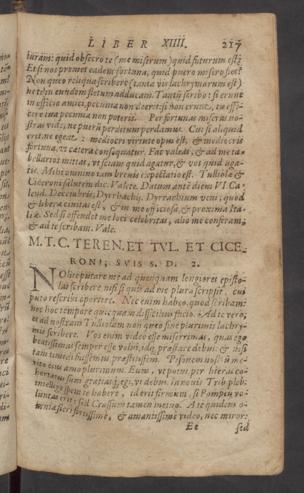 LIBER XIIII. 217
turam: quid obsecro te (me miserum) quid futurum est?
Et si nos premet eadem fortuna, quid puero misero fiet?
Non queo reliqua scribere (tanta vis lachrymarum est)
neque te in eundem fletum adducam. Tantum scribo: si erunt
in officio amici, pecunia non deerit: si non erunt, tu effi-
cere tua pecunia non poteris. Per fortunas miseras no-
stras vide, ne puerum perditum perdamus. Cui si aliquid
erit, ne egeat, mediocri virtute opus est, & mediocri
fortuna, ut cætera consequatur. Fac valeas, & ad me ta-
bellarios mittas, ut sciam quid agatur, & vos quid aga-
tis. Mihi omnino iam brevis expectatio est. Tulliolæ &
Ciceroni salutem dic. Valete. Datum ante diem VI. Ca-
lend. Decembris, Dyrrhachij. Dyrrachium veni, quod
& libera civitas est, & in me officiosa, & proxima Ita-
liæ. Sed si offendet me loci celebritas, alio me conferam,
& ad te scribam. Vale.
M. T. C. TEREN. ET TVL. ET CICE-
RONI, SVIS S. D. 2.
NOli putare me ad quenquam longiores episto-
las scribere, nisi si quis ad me plura scripsit, cui
puto rescribi oportere. Nec enim habeo, quod scribam:
nec hoc tempore quicquam difficilius facio. Ad te vero,
et ad nostram Tulliolam non queo sine plurimis lachry-
mis scribere. Vos enim video esse miserrimas, quas ego
beatissimas semper esse volui, idque præstare debui: & nisi
tam timidi fuissemus præstitissem. Pisonem nostrum me-
rito eius amo plurimum. Eum, ut potui per literas co-
hortatus sum: gratiasque egi, ut debui. In novis Trib. pleb.
intelligo spem te habere, id erit firmum, si Pompeij vo-
luntas erit: sed Crassum tamen metuo. A te quidem o-
mnia fieri fortissime, & amantissime video, nec miror:
Et sed